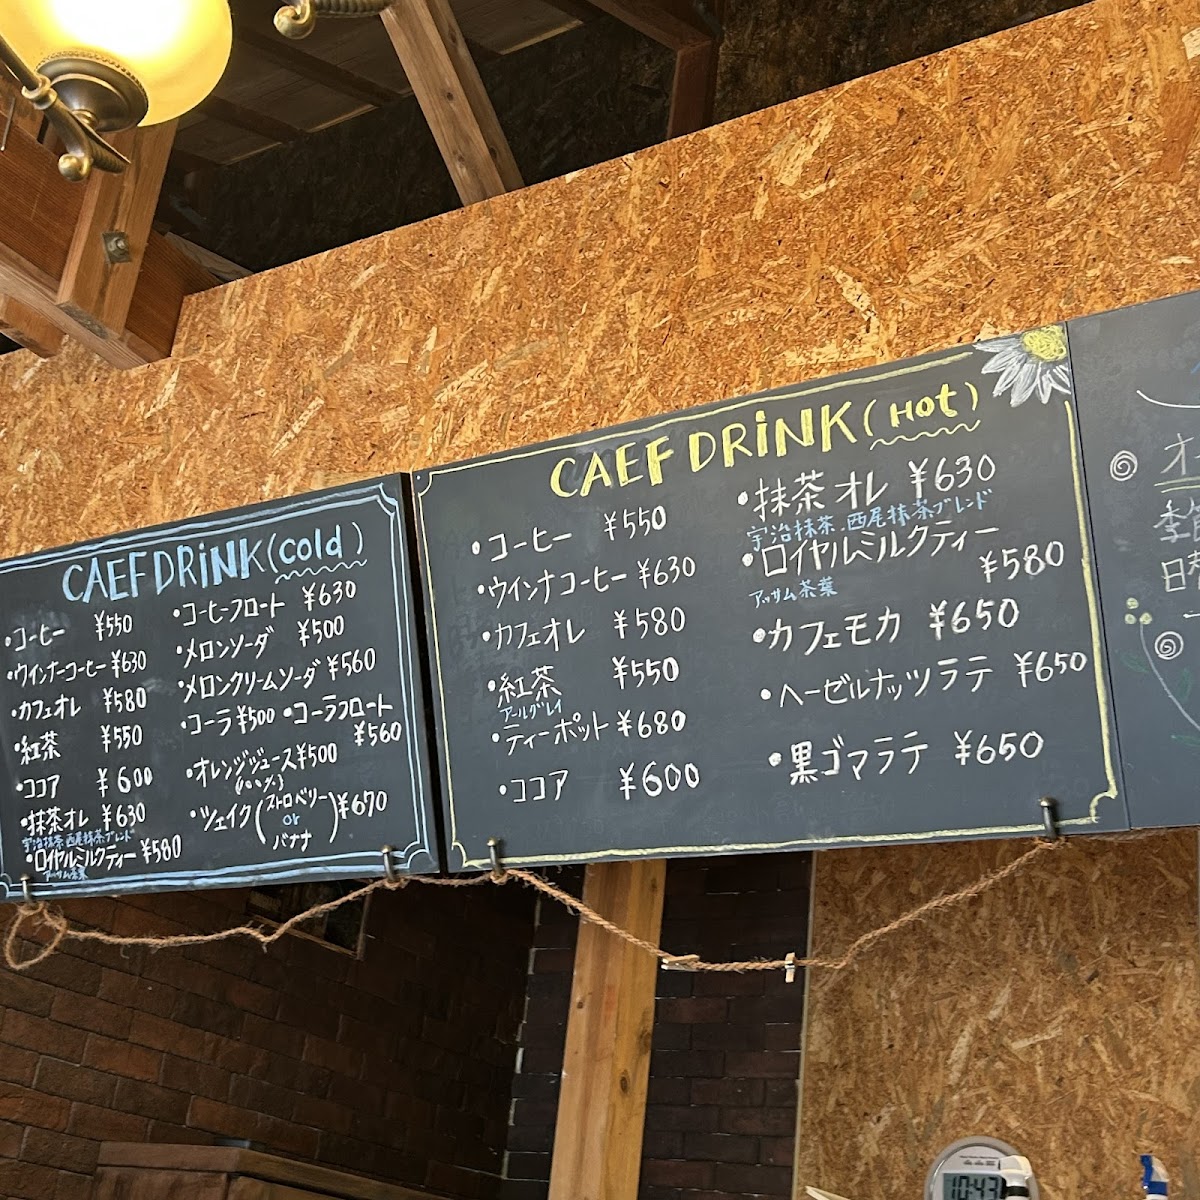 CAEF DRiNK (cold)
・コーヒー ¥550
・ウインナーコーヒー ¥630
・カフェオレ ¥580
・紅茶 ¥550
・ココア ¥600
・抹茶オレ ¥630
宇治抹茶 西尾抹茶ブレンド
・ロイヤルミルクティー ¥580
アッサム茶葉
・コーヒーフロート ¥630
・メロンソーダ ¥500
・メロンクリームソーダ ¥560
・コーラ ¥500 ・コーラフロート
¥560
・オレンジジュース ¥500
・シェイク(ストロベリー or バナナ) ¥670
CAEF DRiNK (Hot)
・コーヒー ¥550
・ウインナコーヒー ¥630
・カフェオレ ¥580
・紅茶 ¥550
アールグレイ
・ティーポット ¥680
・ココア ¥600
・抹茶オレ ¥630
宇治抹茶 西尾抹茶ブレンド
・ロイヤルミルクティー
¥580
アッサム茶葉
・カフェモカ ¥650
・ヘーゼルナッツラテ ¥650
・黒ゴマラテ ¥650
10:43